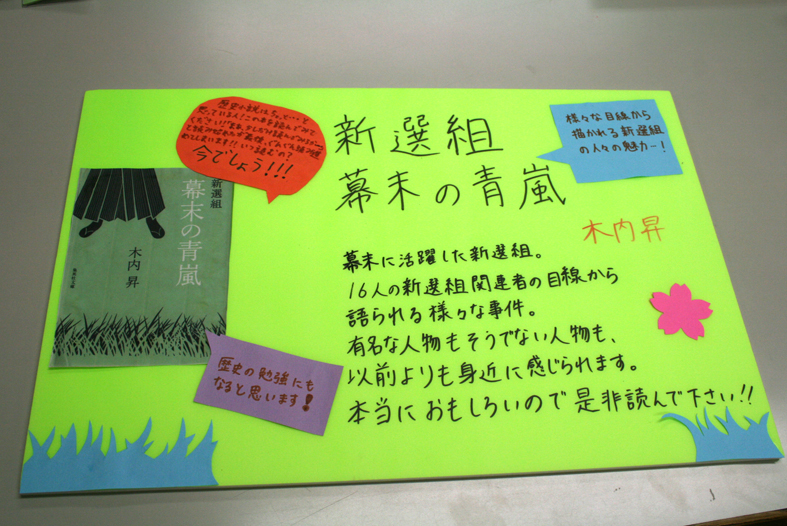 歴史小説はちょっと…と
思っている人!この本を読んでみて
ください!
今でしょう!!!
新選組
幕末の青嵐
木内昇
様々な目線から
描かれる新選組
の人々の魅力ー!
新選組
幕末の青嵐
木内 昇
集英社文庫
幕末に活躍した新選組。
16人の新選組関連者の目線から
語られる様々な事件。
有名な人物もそうでない人物も、
以前よりも身近に感じられます。
本当におもしろいので是非読んで下さい!!
歴史の勉強にも
なると思います!